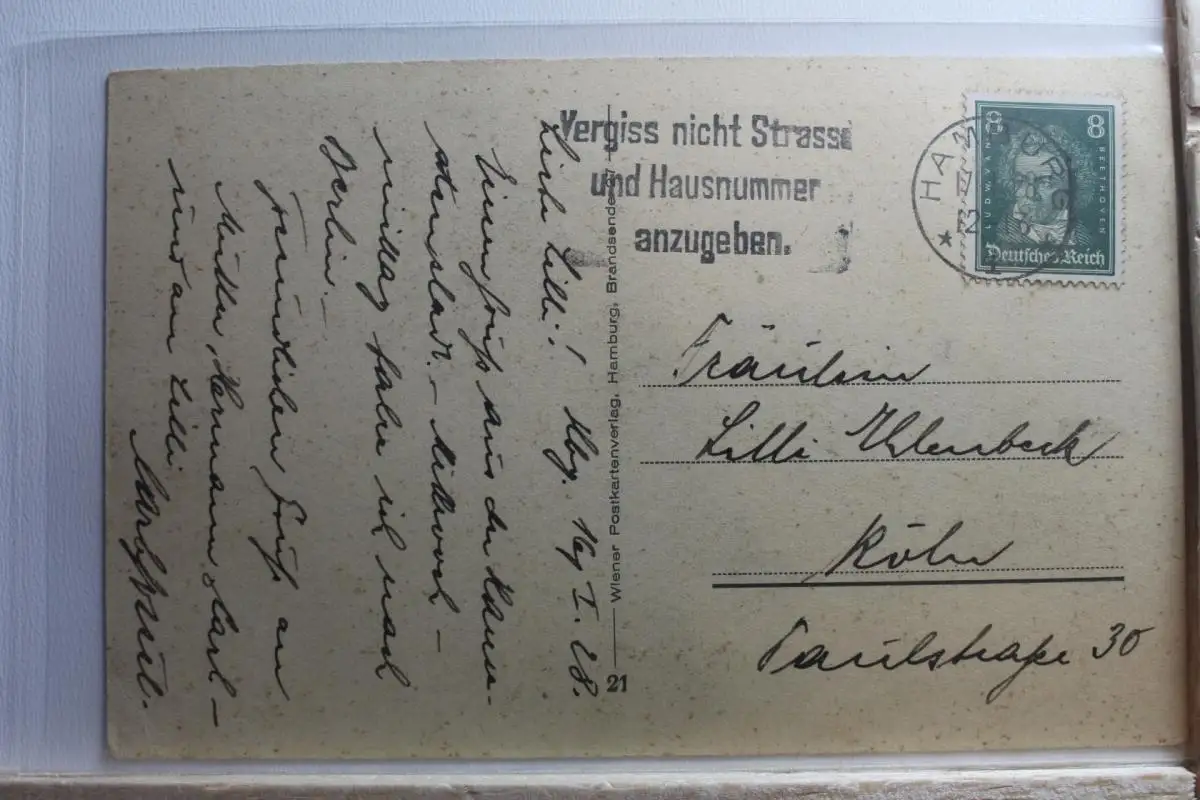 Vergiss nicht Strasse
und Hausnummer
anzugeben.
HAMBURG
8 8
LUDW. VAN BEETHOVEN
Deutsches Reich
Fräulein
Lilli Uhlenbeck
Köln
Paulstraße 30
Wiener Postkartenverlag, Hamburg, Brandsende
21
Hbg. 16 I. 28.
Liebe Lilli!
Einen Gruß aus der Hanse-
atenstadt. – Mittwoch –
mittag fahre ich nach
Berlin. –
Freundlichen Gruß an
Mutter, Hermann, Carl –
und an Lilli